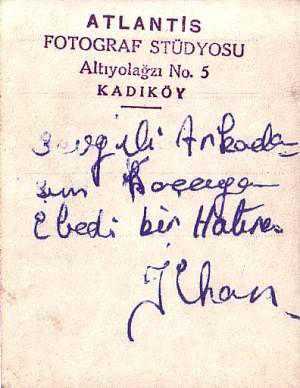 ATLANTİS
FOTOGRAF STÜDYOSU
Altıyolağzı No. 5
KADIKÖY
Sevgili Arkada-
şım
Ebedi bir Hatıra
İlhan